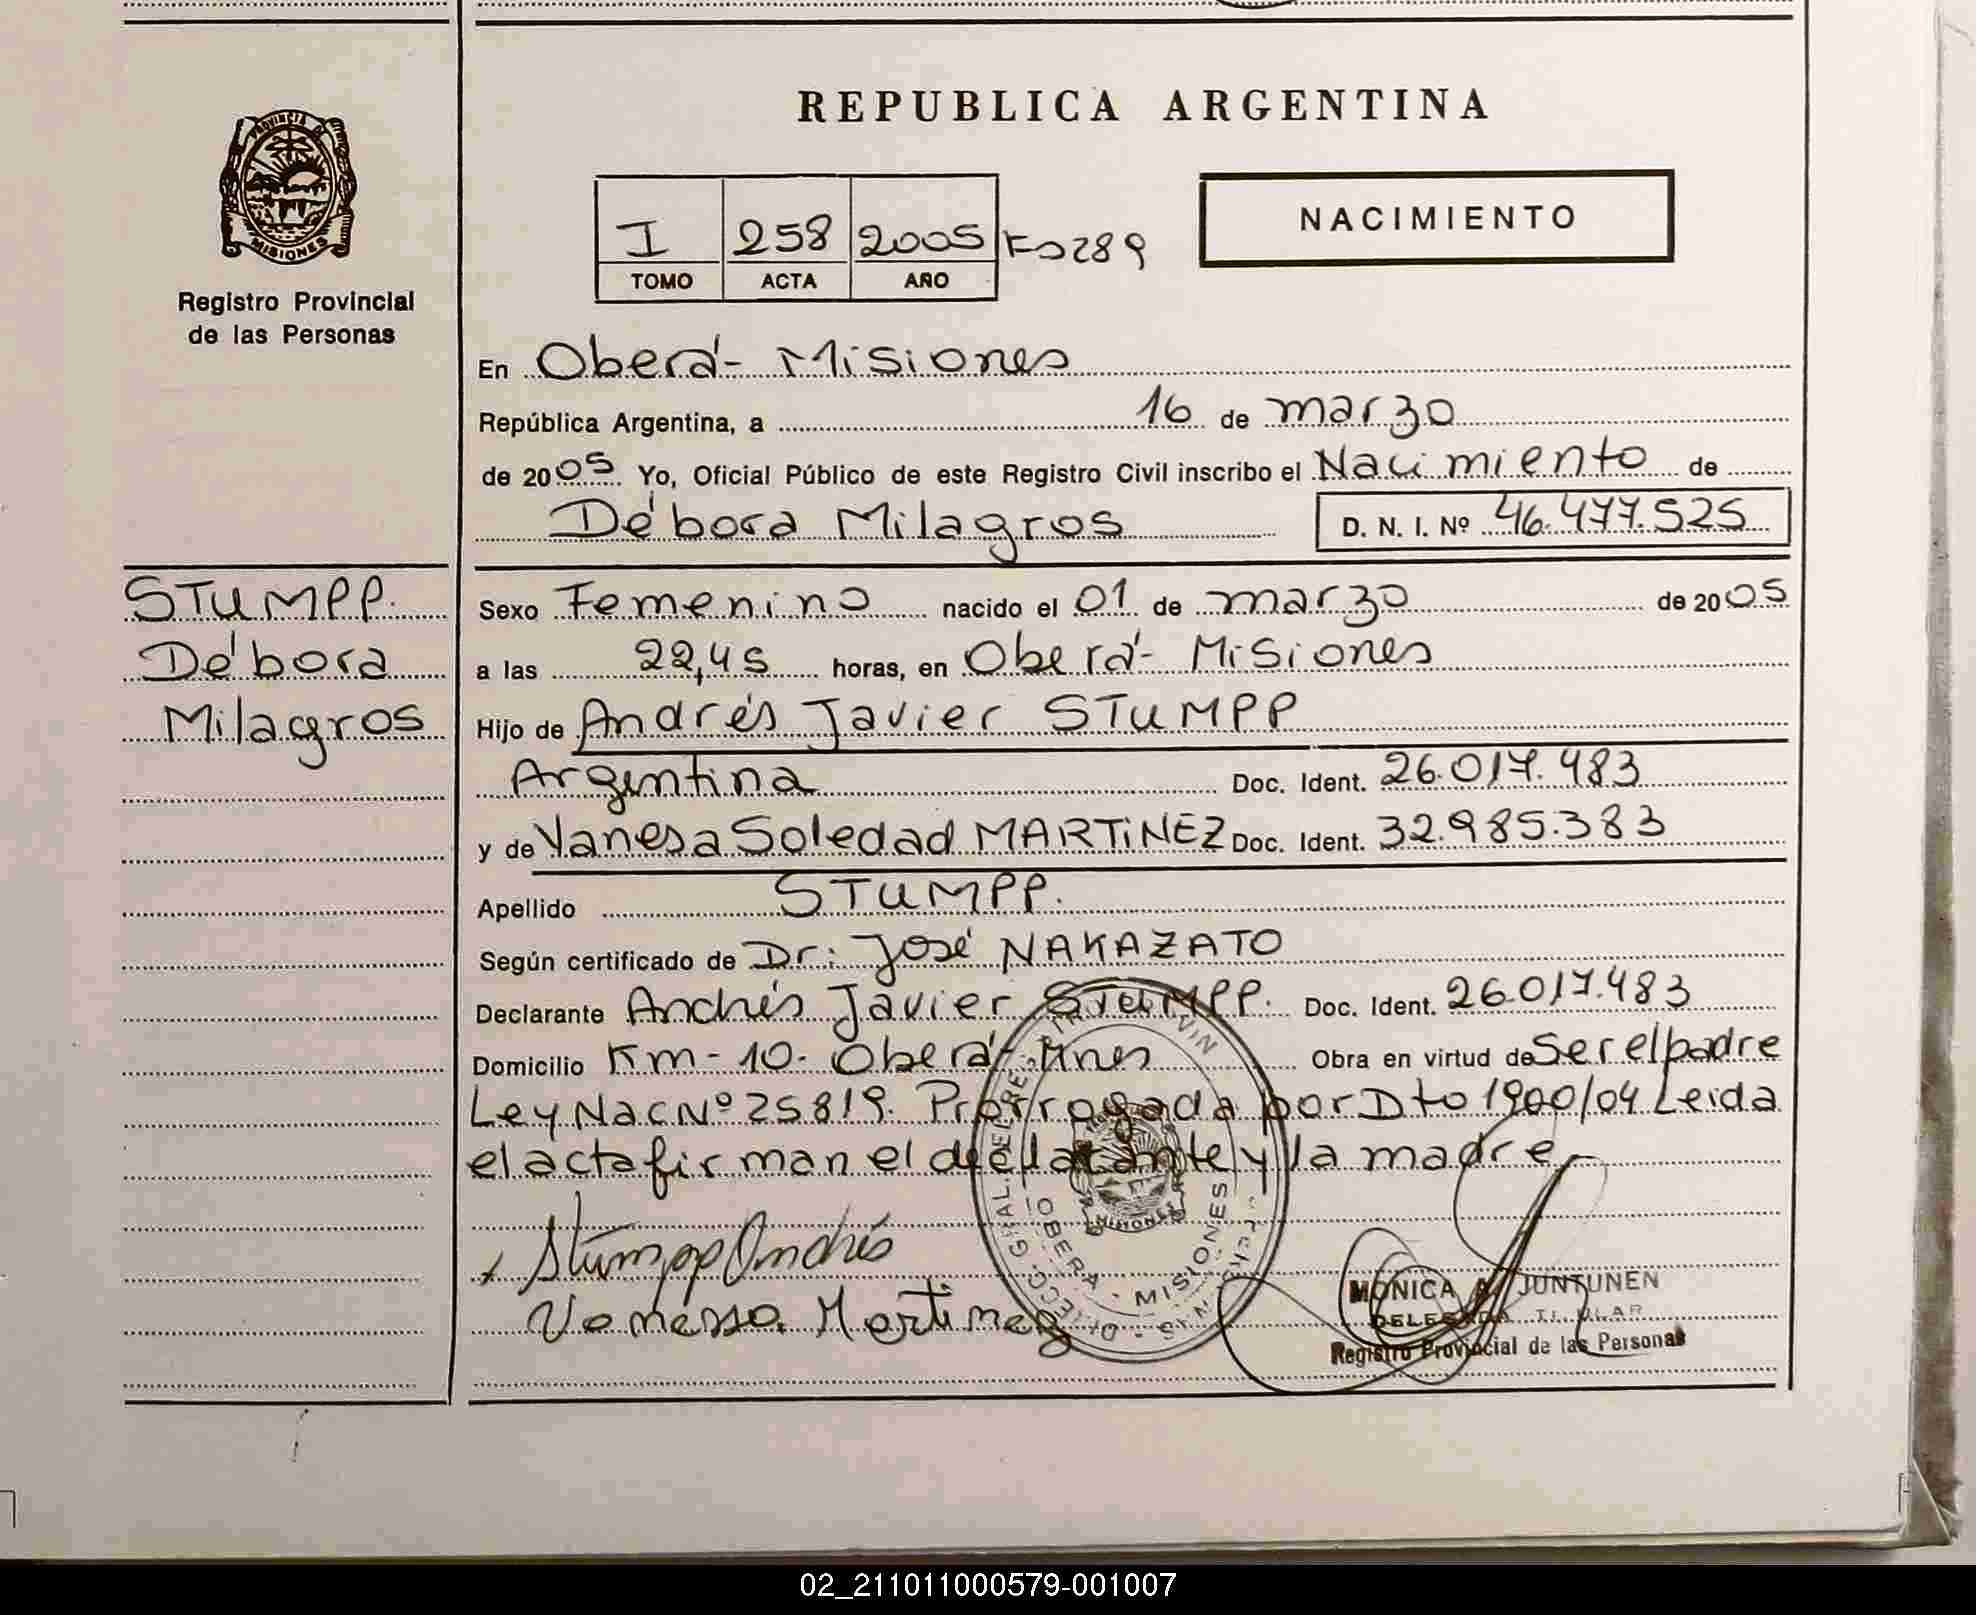 REPUBLICA ARGENTINA
PROVINCIA DE
MISIONES
Registro Provincial
de las Personas
I 258 2005 Fº 289
TOMO ACTA AÑO
NACIMIENTO
En Oberá - Misiones
República Argentina, a 16 de marzo
de 2005 Yo, Oficial Público de este Registro Civil inscribo el Nacimiento de
Débora Milagros D. N. I. Nº 46.477.525
STUMPP.
Débora
Milagros
Sexo Femenino nacido el 01 de marzo de 2005
a las 22,45 horas, en Oberá - Misiones
Hijo de Andrés Javier STUMPP
Argentina Doc. Ident. 26.017.483
y de Vanesa Soledad MARTINEZ Doc. Ident. 32.985.383
Apellido STUMPP.
Según certificado de Dr: José NAKAZATO
Declarante Andrés Javier STUMPP. Doc. Ident. 26.017.483
Domicilio Km - 10 - Oberá - Mnes Obra en virtud de Ser el padre
Ley Nac Nº 25819. Prorrogada por Dto 1900/04 Leida
el acta firman el declarante y la madre
Stumpp Andrés
Vanessa Martinez
OBERA - MISIONES
MISIONES
MONICA A. JUNTUNEN
DELEGADA TITULAR
Registro Provincial de las Personas
02_211011000579-001007